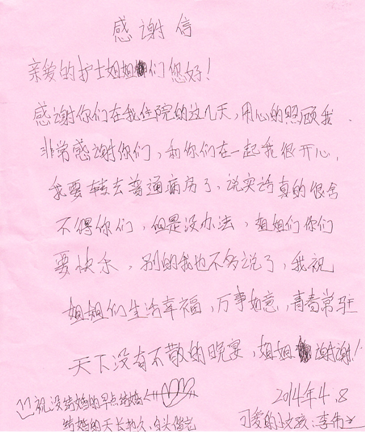 感谢信
亲爱的护士姐姐们您好!
感谢你们在我住院的这几天,用心的照顾我.
非常感谢你们,和你们在一起我很开心,
我要转去普通病房了,说实话真的很舍
不得你们,但是没办法,姐姐们你们
要快乐,别的我也不多说了,我祝
姐姐们生活幸福,万事如意,青春常驻
天下没有不散的晚宴,姐姐谢谢!
祝没结婚的早点结婚
结婚的天长地久,白头偕老
2014年4.8
可爱的女孩:李